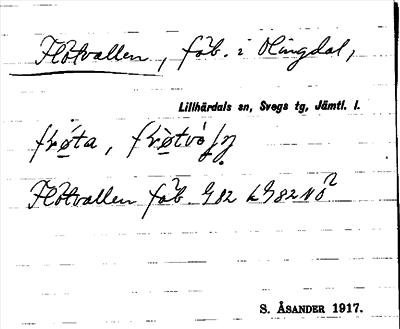 Flötvallen, fäb. i Olingdal,
Lillhärdals sn, Svegs tg, Jämtl. l.
frø̀ta,
Flötvallen fäb G 82 k G82NÖ
S. ÅSANDER 1917.